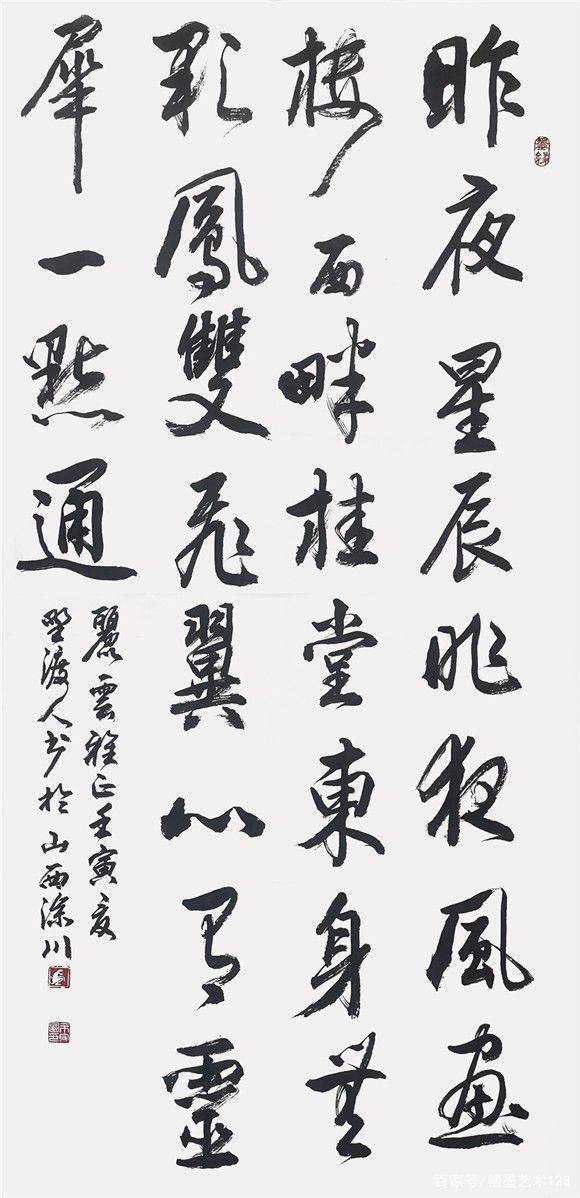 昨夜星辰昨夜風畫
樓西畔桂堂東身無
彩鳳雙飛翼心有靈
犀一點通
麗雲雅正壬寅夏
野渡人書於山西川
百家号/墨艺术123